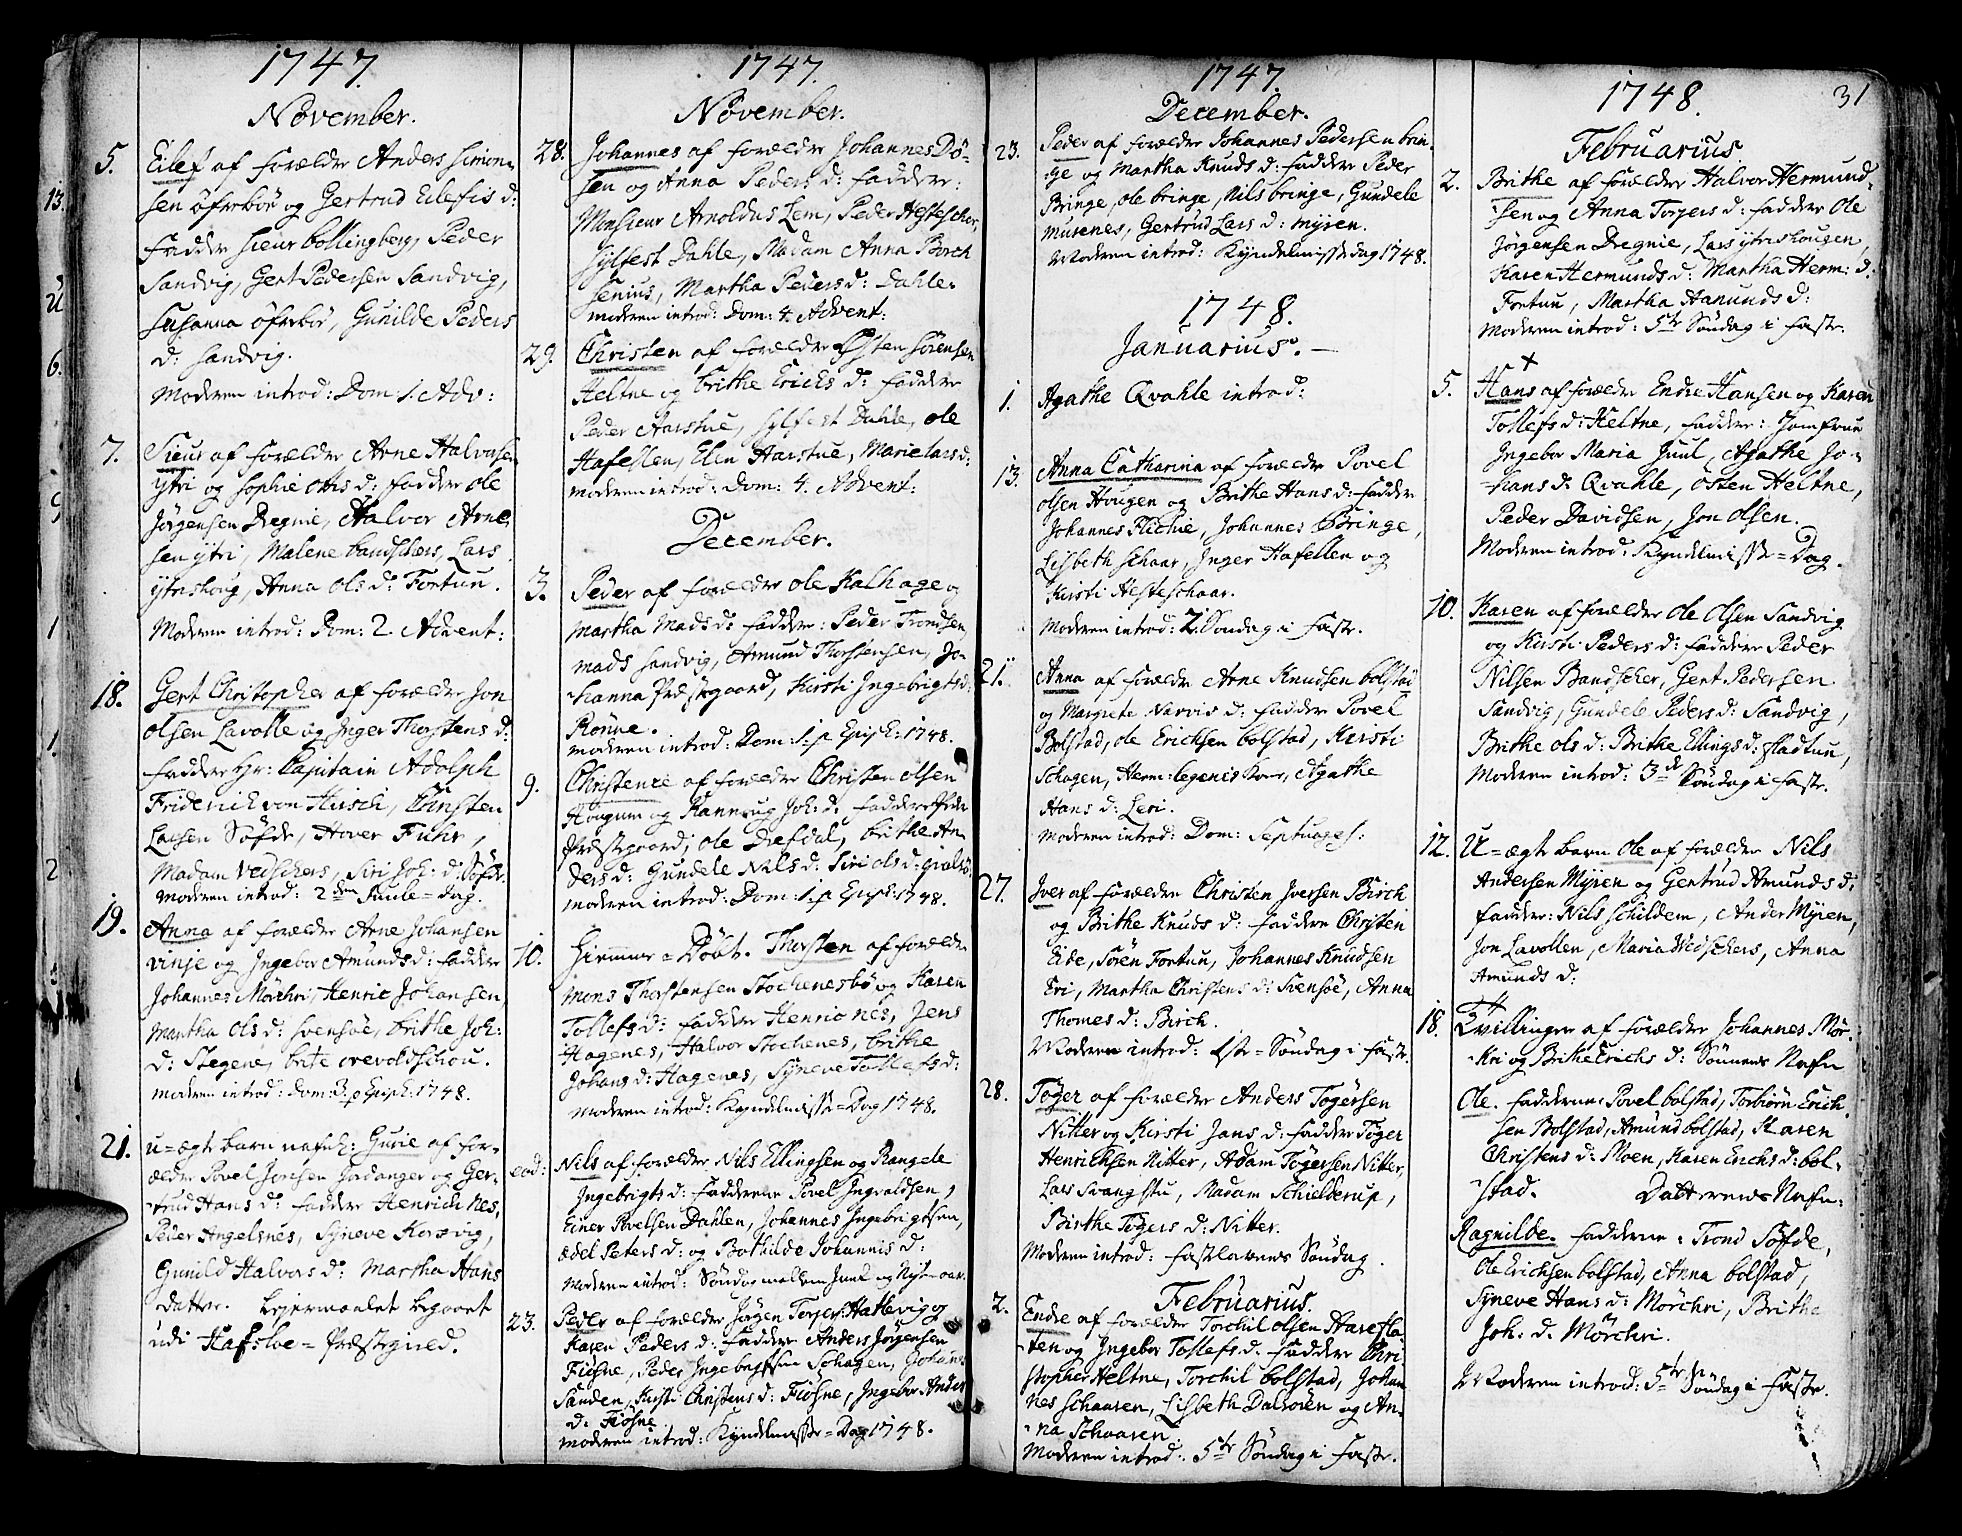 1747.
November.
5. Eilef af forældre Anders Simon-
sen öfrebör og Gertrud Eilefis d:
Faddre Sieur bollingberg, Peder
Sandvig, Gert Pedersen Sandvig,
Susanna öfrebör, Gunilde Peders
d: Sandvig.
Moderen introd: Dom: 1. Adv:
7. Siur af forældre Arne Halvorsen
ytri og Sophie Olis d: faddre ole
Jörgensen Dregnie, Halvor Arne
sen ytri, Malene bandschers, Lars
ytrishoug, Anna Ols d: Fortun.
Moderen introd: Dom: 2 Advent:
18. Gert Christopher af forældre Jon
olsen Lavolle og Inger Thorstens d:
faddre Hr: Capitain Adolph
Friderich von Hirsch, Christen
Larsen Söfde, Hover Fuhr,
Madam Vedschers, Siri Joh: d: Söfde.
Moderen introd: 2den Juule-dag.
19. Anna af forældre Arne Johansen
vinje og Ingebor Amunds d: faddre
Johannes Mörchri, Henric Johansen
Martha Ols d: Svensöe, brithe Joh:
d: Stegene, brite orevoldschou.
Moderen introd: dom: 3. p Epiph: 1748.
21. u-ægte barn nafnl: Gurie af for-
ældre Povel Jonsen Jadanger og Ger-
trud Hans d: faddre Henrich Nes,
Peder Angelsnes, Syneve Korsvig,
Gunild Halvors d: Martha Hans
datter. Lejermaalet begaaet
udi Hafsloe-Præstegield.
1747.
November.
28. Johannes af forældre Johannes Dö-
sen og Anna Peders d: Faddere:
Monsieur Arnoldus Lem, Peder Hesteschor,
Sylfest Dahle, Madam Anna Birch
Senius, Martha Peders d: Dahle.
Moderen introd: Dom: 4. Advent:
29. Christen af forældre Østen Sörensen
Heltne og brithe Erichs d: faddere
Peder Aarstue, Sylfest Dahle, ole
Hafellen, Elen Aarstue, Marie Lars d:
Moderen introd: Dom: 4. Advent:
December.
3. Peder af forældre ole Kalhage og
Martha Mads d: faddere: Peder Trondsen
Mads Sandvig, Amund Thorstensen, Jo-
hanna Præstegaard, Kirsti Ingebrigts d:
Rönne.
Moderen introd: Dom: 1. p Epiph: 1748.
9. Christence af forældre Christen olsen
Hougum og Rannvug Joh: d: faddere Peder
Præstgaard, ole Drefdal, brithe An-
ders d: Gundele Nils d: Siri ols d:
Moderen introd: Dom: 1. p Epiph: 1748.
10. Hiemme-Döbt. Thorsten af forældre
Mons Thorstensen Stochenesbö og Karen
Tollefs d: faddere Henric nes, Jens
Hagenes, Halvor Stochenes, brithe
Johans d: Hagenes, Syneve Tollefs d:
Moderen introd: Kyndelmisse-Dag 1748.
eod: Nils af forældre Nils Ellingsen og Rangele
Ingebrigts d: Fadderne Povel Ingvaldsen,
Einer Povelsen Dahlen, Johannes Ingebrigtsen,
Ædel Peters d: og Bothilde Johannis d:
Moderen introd: Söndag mellem Juul og Nyt-aar.
23. Peder af forældre Jörgen Torjers: Hattevig og
Karen Peders d: Faddere Anders Jörgensen
Fiösne, Peder Ingebrigtsen Schagen, Johans
Sanden, Kirsti Christens d: Fiösne, Ingebor Anders
d: Fiösne.
Moderen introd: Kyndelmisse-Dag 1748.
1747.
December.
23. Peder af forældre Johannes Pedersen brin-
ge og Martha Knuds d: faddre Peder
Bringe, ole bringe, Nils bringe, Gundele
Murenes, Gertrud Lars d: Myren.
Moderen introd: Kyndelmisse dag 1748.
1748.
Januarius.
1. Agathe Qvahle introd:
13. Anna Catharina af forældre Povel
olsen Hougen og Brithe Hans d: faddre
Johannes Flichie, Johannes Bringe,
Lisbeth Schaar, Inger Hafellen og
Kirsti Hesteschaar.
Moderen introd: 2. Söndag i Faste.
21. Anna af forældre Arne Knudsen bolstad
og Margrete Narvis d: faddre Povel
Bolstad, ole Erichsen bolstad, Kirsti
Schagen, Herm: legenis Kone, Agathe
Hans d: Leri.
Moderen introd: Dom: Septuages:
27. Iver af forældre Christen Iversen Birch
og Brithe Knuds d: faddere Christen
Eide, Sören Fortun, Johannes Knudsen
Eri, Martha Christens d: Svensöe, Anna
Thomes d: Birch.
Moderen introd: 1ste-Söndag i faste.
28. Töger af forældre Anders Tögersen
Nitter og Kirsti Jans d: faddere Töger
Henrichsen Nitter, Adam Tögersen Nitter,
Lars Svangstu, Madam Schielderup,
Birthe Tögers d: Nitter.
Moderen introd: fastelavens Söndag.
Februarius.
2. Endre af forældre Torchil olsen Harefla-
ten og Ingebor Tollefs d: faddere Chri-
stopher Heltne, Torchil bolstad, Johan-
nes Schaaren, Lisbeth Dalsören og An-
na Schaaren.
Moderen introd: 5te Söndag i Faste.
31
1748.
Februarius
2. Brithe af forældre Halvor Hermund-
sen og Anna Torgers d: faddere Ole
Jörgensen Dregnie, Lars ytrishougen,
Karen Hermunds d: Martha Herm: d:
Fortun, Martha Hanunds d:
Moderen introd: 5te Söndag i faste.
5. Hans af forældre Endre Hansen og Karen
Tollefs d: Heltne, faddere: Jomfrue
Ingebor Maria Juul, Agathe Jo-
hans d: Qvahle, östen Heltne,
Peder Davidsen, Jon Olsen.
Moderen introd: Kyndelmisse-Dag.
10. Karen af forældre Ole Olsen Sandvig
og Kirsti Peders d: faddere Peder
Nilsen Bandscher, Gert Pedersen
Sandvig, Gundele Peders d: Sandvig,
Brithe Ols d: Brithe Ellings d: fladtun,
Moderen introd: 3de Söndag i Faste.
12. U-ægte barn Ole af forældre Nils
Andersen Myren og Gertrud Amunds d:
faddere: Nils Schildem, Ander Myren,
Jon Lavollen, Maria Vedschers, Anna
Amunds d:
18. Tvillinger af forældre Johannes Mör-
kri og Brithe Erichs d: Sönnens Nafn
Ole. Fadderne: Povel bolstad, Torbiörn Erich-
sen Bolstad, Amund bolstad, Karen
Christens d: Moen, Karen Erichs d: bol-
stad. Datterens Nafn:
Ragnilde. Fadderne: Trond Söfde,
Ole Erichsen bolstad, Anna bolstad,
Syneve Hans d: Mörchri, Brithe
Joh: d: Mörchri.
Moderen introd: 5te Söndag i Faste.